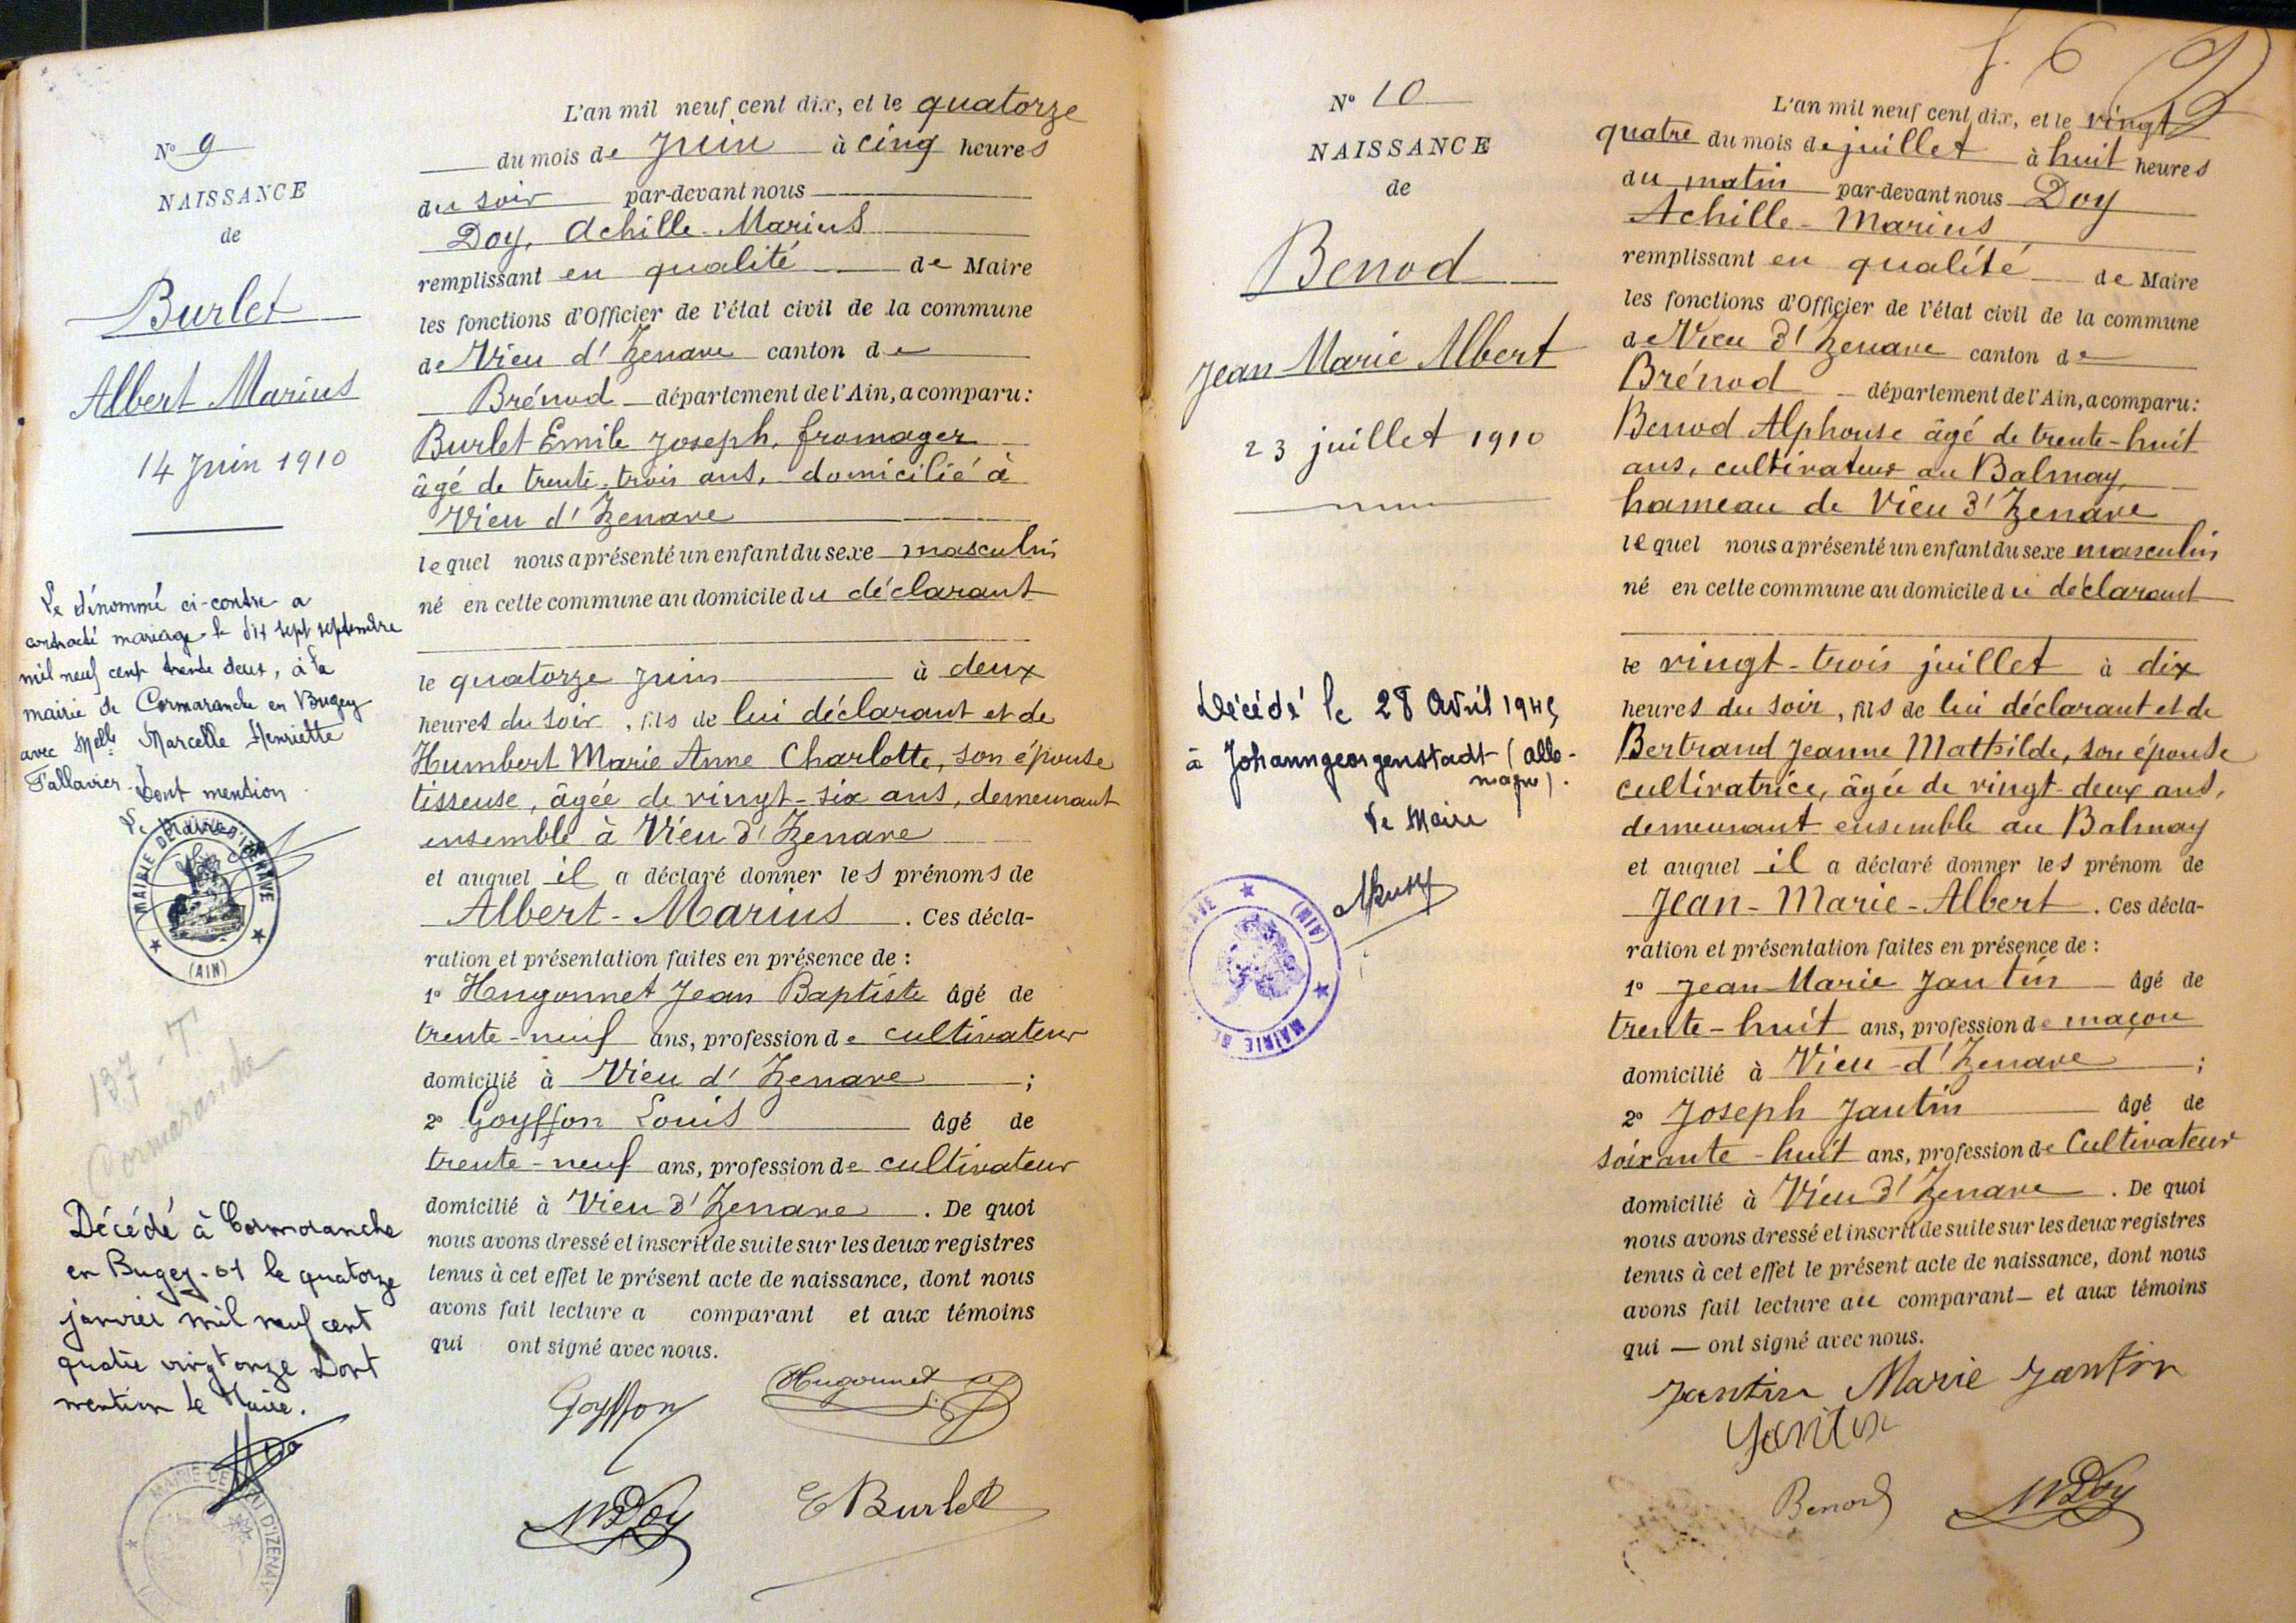 N° 9
NAISSANCE
de
Burlet
Albert Marius
14 Juin 1910
Le dénommé ci-contre a
contracté mariage le dix sept septembre
mil neuf cent trente deux, à la
mairie de Cormaranche en Bugey
avec Melle Marcelle Henriette
Fallavier. Dont mention
Le Maire
MAIRIE DE VIEU D'IZENAVE
(AIN)
137 - T
Cormaranche
Décédé à Cormoranche
en Bugey-01 le quatorze
janvier mil neuf cent
quatre vingt onze Dont
mention le Maire.
MAIRIE DE VIEU D'IZENAVE
L'an mil neuf cent dix, et le quatorze
du mois de Juin à cinq heures
du soir par-devant nous
Doy, Achille-Marius
remplissant en qualité de Maire
les fonctions d'Officier de l'état civil de la commune
de Vieu d'Izenave canton de
Brénod département de l'Ain, a comparu :
Burlet Emile Joseph, fromager
âgé de trente-trois ans, domicilié à
Vieu d'Izenave
lequel nous a présenté un enfant du sexe masculin
né en cette commune au domicile du déclarant
le quatorze Juin à deux
heures du soir, fils de lui déclarant et de
Humbert Marie Anne Charlotte, son épouse
tisseuse, âgée de vingt-six ans, demeurant
ensemble à Vieu d'Izenave
et auquel il a déclaré donner les prénoms de
Albert-Marius. Ces décla-
ration et présentation faites en présence de :
1° Hugonnet Jean Baptiste âgé de
trente-neuf ans, profession de cultivateur
domicilié à Vieu d'Izenave ;
2° Goyffon Louis âgé de
trente-neuf ans, profession de cultivateur
domicilié à Vieu d'Izenave. De quoi
nous avons dressé et inscrit de suite sur les deux registres
tenus à cet effet le présent acte de naissance, dont nous
avons fait lecture a comparant et aux témoins
qui ont signé avec nous.
Goyffon Hugonnet
MDoy E Burlet
N° 10
NAISSANCE
de
Benod
Jean Marie Albert
23 juillet 1910
Décédé le 28 Avril 1945
à Johanngeorgenstadt (Alle-
magne).
Le Maire
MAIRIE DE
(AIN)
f. 6
L'an mil neuf cent dix, et le vingt
quatre du mois de juillet à huit heures
du matin par-devant nous Doy
Achille-Marius
remplissant en qualité de Maire
les fonctions d'Officier de l'état civil de la commune
de Vieu d'Izenave canton de
Brénod département de l'Ain, a comparu :
Benod Alphonse âgé de trente-huit
ans, cultivateur au Balmay,
hameau de Vieu d'Izenave
lequel nous a présenté un enfant du sexe masculin
né en cette commune au domicile du déclarant
le vingt-trois juillet à dix
heures du soir, fils de lui déclarant et de
Bertrand Jeanne Mathilde, son épouse
cultivatrice, âgée de vingt-deux ans,
demeurant ensemble au Balmay
et auquel il a déclaré donner les prénom de
Jean-Marie-Albert. Ces décla-
ration et présentation faites en présence de :
1° Jean-Marie Jantin âgé de
trente-huit ans, profession de maçon
domicilié à Vieu-d'Izenave ;
2° Joseph Jantin âgé de
soixante-huit ans, profession de Cultivateur
domicilié à Vieu d'Izenave. De quoi
nous avons dressé et inscrit de suite sur les deux registres
tenus à cet effet le présent acte de naissance, dont nous
avons fait lecture au comparant et aux témoins
qui — ont signé avec nous.
Jantin Marie Jantin
Jantin
Benod MDoy